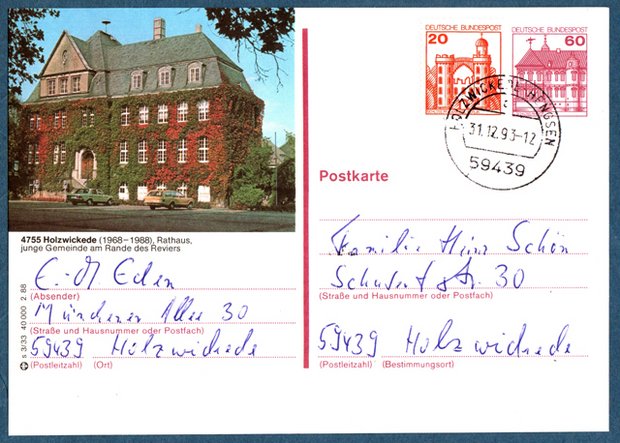 4755 Holzwickede (1968–1988), Rathaus,
junge Gemeinde am Rande des Reviers
E.-M. Eden
(Absender)
Münchener Allee 30
(Straße und Hausnummer oder Postfach)
59439 Holzwickede
(Postleitzahl) (Ort)
s 3/33 40 000 2.88
DEUTSCHE BUNDESPOST
20
DEUTSCHE BUNDESPOST
60
HOLZWICKEDE HENGSEN
31.12.93-12
59439
Postkarte
Familie Heinz Schön
30
(Straße und Hausnummer oder Postfach)
59439 Holzwickede
(Postleitzahl) (Bestimmungsort)